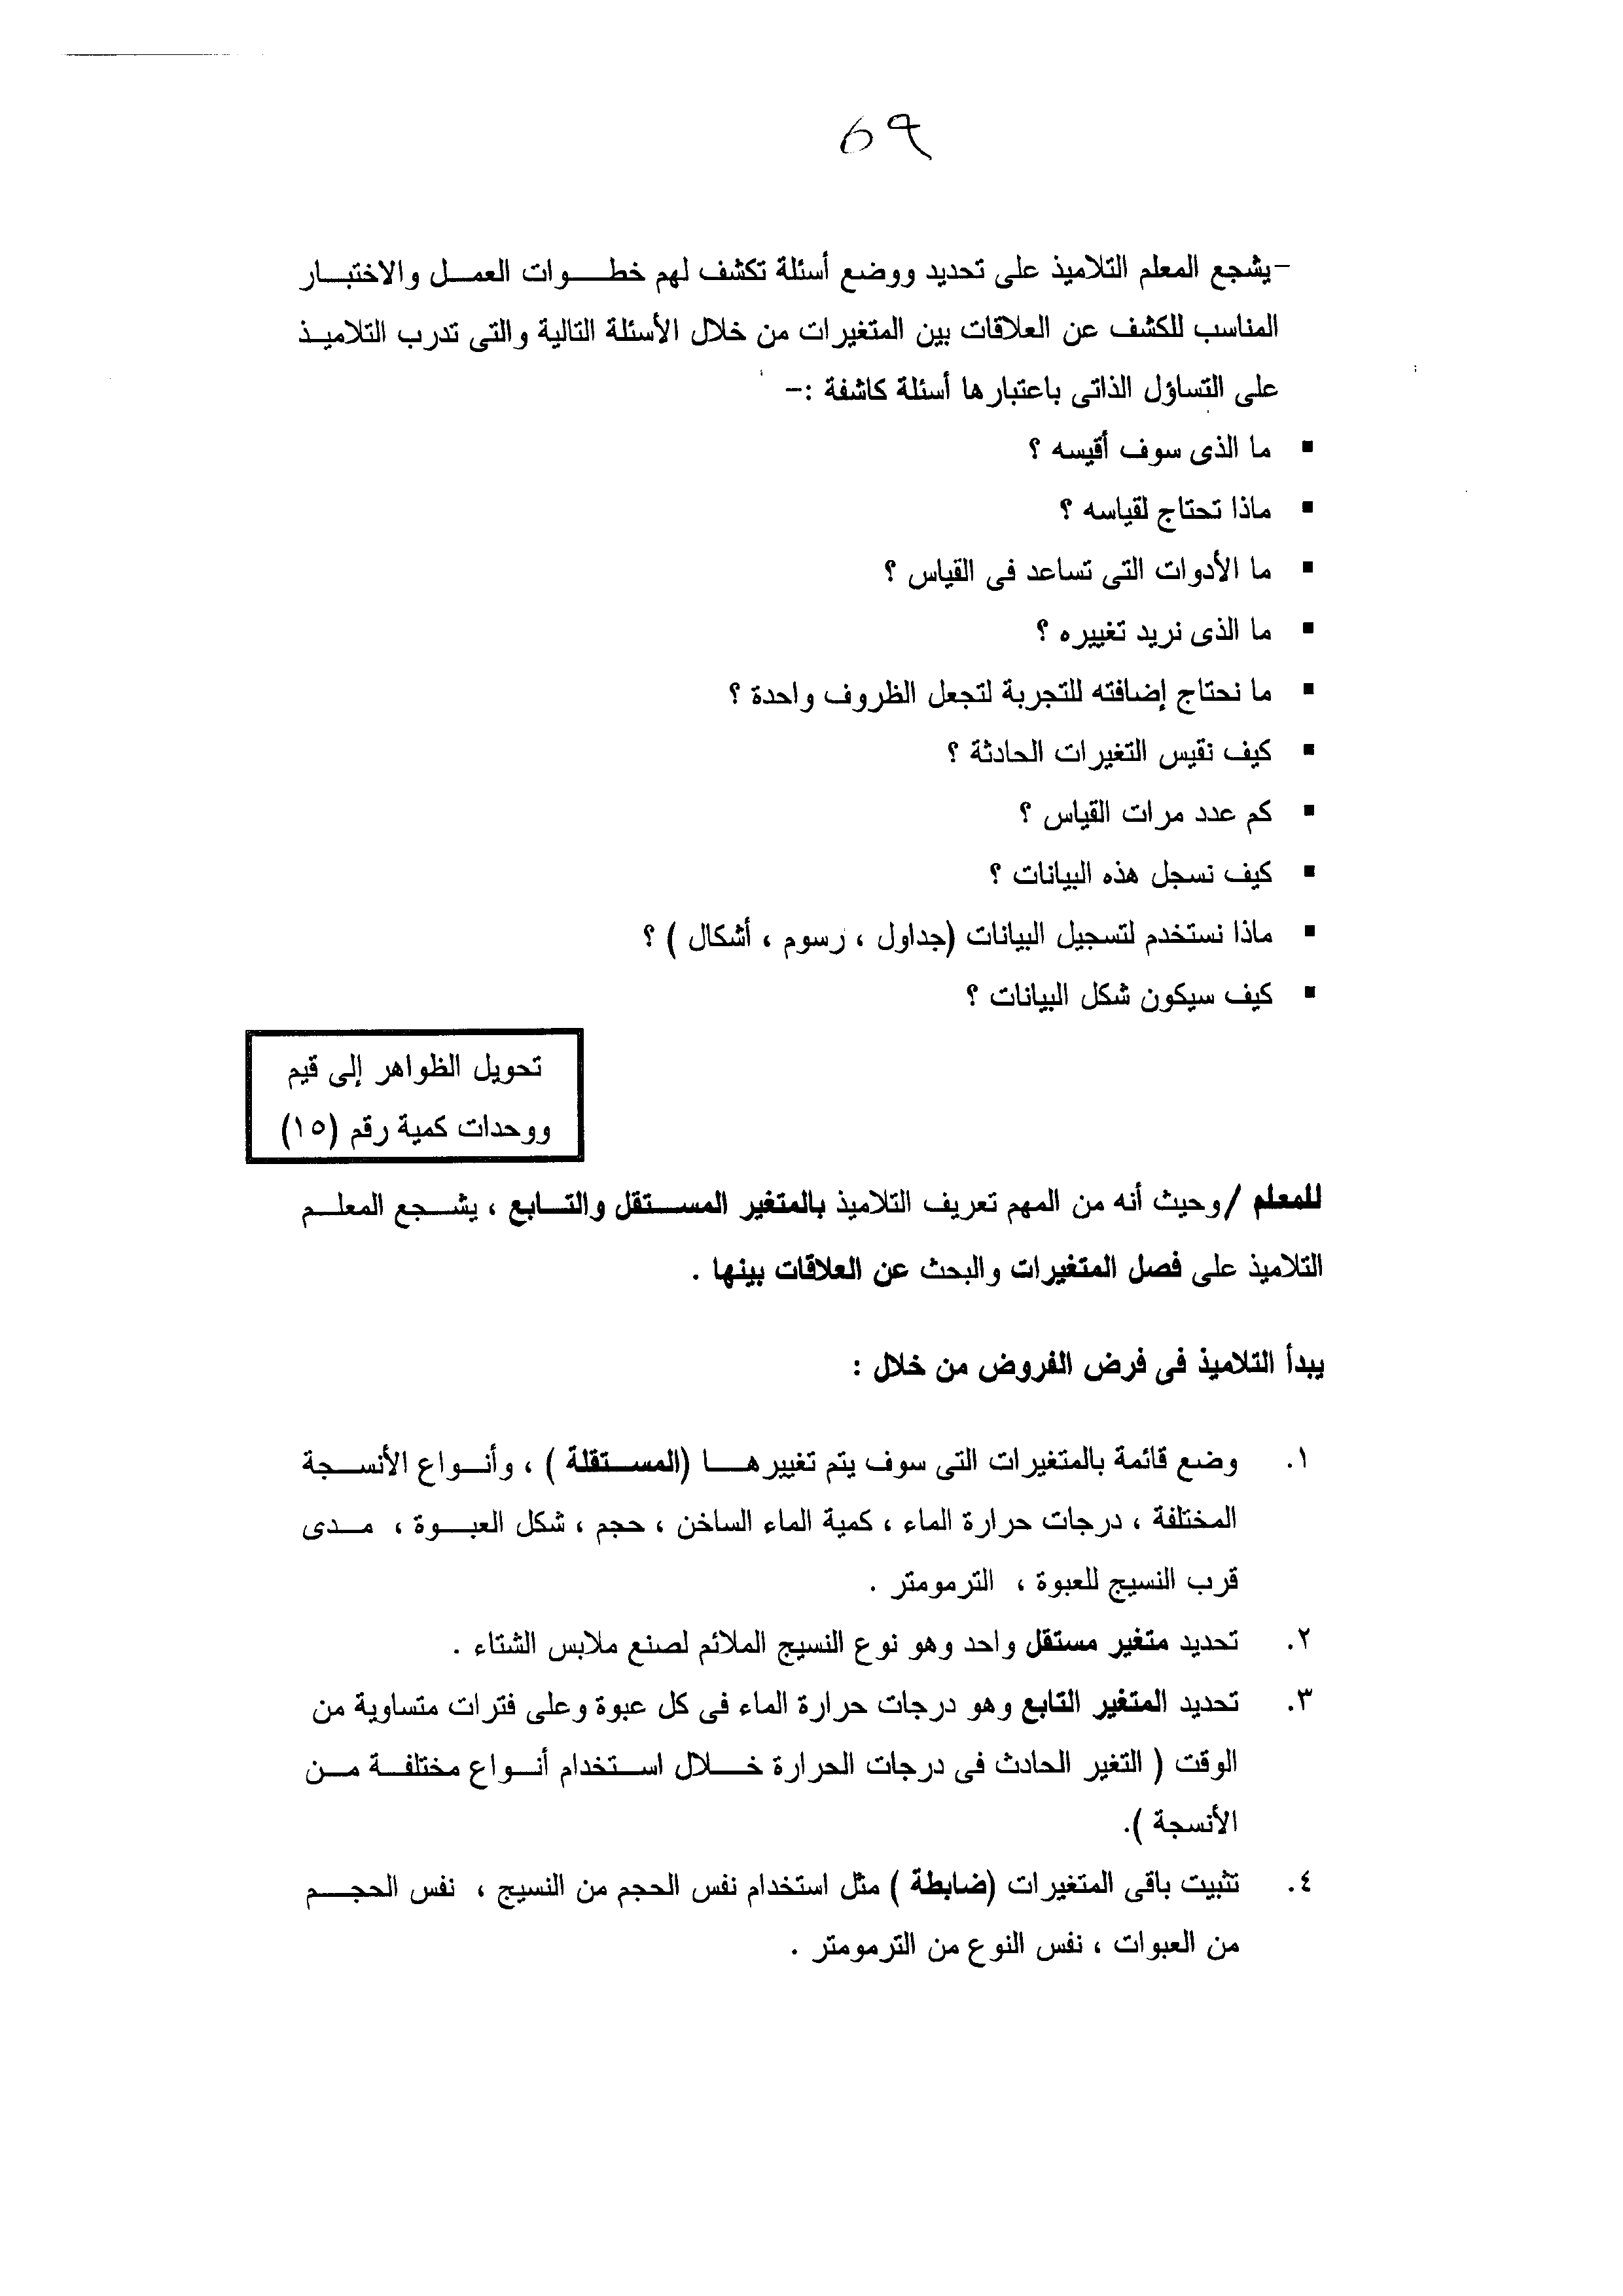 69
-يشجع المعلم التلاميذ على تحديد ووضع أسئلة تكشف لهم خطوات العمل والاختبار
المناسب للكشف عن العلاقات بين المتغيرات من خلال الأسئلة التالية والتى تدرب التلاميذ
على التساؤل الذاتى باعتبارها أسئلة كاشفة :-
▪ ما الذى سوف أقيسه ؟
▪ ماذا تحتاج لقياسه ؟
▪ ما الأدوات التى تساعد فى القياس ؟
▪ ما الذى نريد تغييره ؟
▪ ما نحتاج إضافته للتجربة لتجعل الظروف واحدة ؟
▪ كيف نقيس التغيرات الحادثة ؟
▪ كم عدد مرات القياس ؟
▪ كيف نسجل هذه البيانات ؟
▪ ماذا نستخدم لتسجيل البيانات (جداول ، رسوم ، أشكال ) ؟
▪ كيف سيكون شكل البيانات ؟
تحويل الظواهر إلى قيم
ووحدات كمية رقم (١٥)
للمعلم /وحيث أنه من المهم تعريف التلاميذ بالمتغير المستقل والتابع ، يشجع المعلم
التلاميذ على فصل المتغيرات والبحث عن العلاقات بينها .
يبدأ التلاميذ فى فرض الفروض من خلال :
١. وضع قائمة بالمتغيرات التى سوف يتم تغييرها (المستقلة ) ، وأنواع الأنسجة
المختلفة ، درجات حرارة الماء ، كمية الماء الساخن ، حجم ، شكل العبوة ، مدى
قرب النسيج للعبوة ، الترمومتر .
٢. تحديد متغير مستقل واحد وهو نوع النسيج الملائم لصنع ملابس الشتاء .
٣. تحديد المتغير التابع وهو درجات حرارة الماء فى كل عبوة وعلى فترات متساوية من
الوقت ( التغير الحادث فى درجات الحرارة خلال استخدام أنواع مختلفة من
الأنسجة ).
٤. تثبيت باقى المتغيرات (ضابطة ) مثل استخدام نفس الحجم من النسيج ، نفس الحجم
من العبوات ، نفس النوع من الترمومتر .